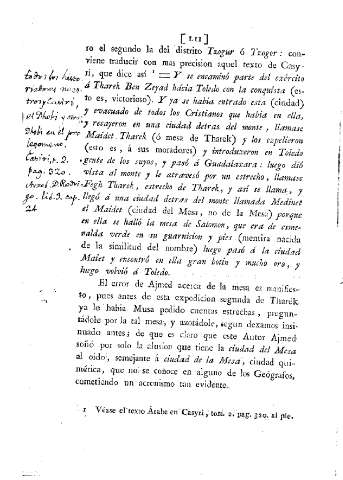 [ 111 ]
ro el segundo la del distrito Tzogur ó Tzoger : con-
viene traducir con mas precision aquel texto de Casy-
ri, que dice asi ¹ Y se encaminó parte del exército
á Tharek Ben Zeyad hácia Toledo con la conquista (es-
to es, victorioso). Y ya se habia entrado esta (ciudad)
y evacuado de todos los Christianos que habia en ella,
y recayeron en una ciudad detras del monte, llamase
Maidet Tharek (ó mesa de Tharek) y los expelieron
(esto es, á sus moradores) y introduxeron en Toledo
gente de los suyos, y pasó á Guadalaxara: luego dió
vista al monte y le atravesó por un estrecho, llamase
Fegh Tharek, estrecho de Tharek, y asi se llama, y
llegó á una ciudad detras del monte llamada Medinet
el Maidet (ciudad del Mesa, no de la Mesa) porque
en ella se halló la mesa de Salomon, que era de esme-
ralda verde en su guarnicion y pies (mentira nacida
de la similitud del nombre) luego pasó á la ciudad
Malet y encontró en ella gran botin y mucho oro, y
luego volvió á Toledo.
El error de Ajmed acerca de la mesa es manifies-
to, pues antes de esta expedicion segunda de Tharek
ya le habia Musa pedido cuentas estrechas, pregun-
tándole por la tal mesa, y azotándole, segun dexamos insi-
nuado antes; de que es claro que este Autor Ajmed
soñó por solo la alusion que tiene la ciudad del Mesa
al oido, semejante á ciudad de la Mesa, ciudad qui-
mérica, que no se conoce en alguno de los Geógrafos,
cometiendo un acronismo tan evidente.
1 Véase el texto Árabe en Casyri, tom. 2. pag. 320. al pie.
todos los histo
riadores
tros
el Dhobi y
Dhobi en el pro
legomeno.
Casiri, t. 2.
pag. 320.
D. Rodri
go. lib. 3. cap.
24